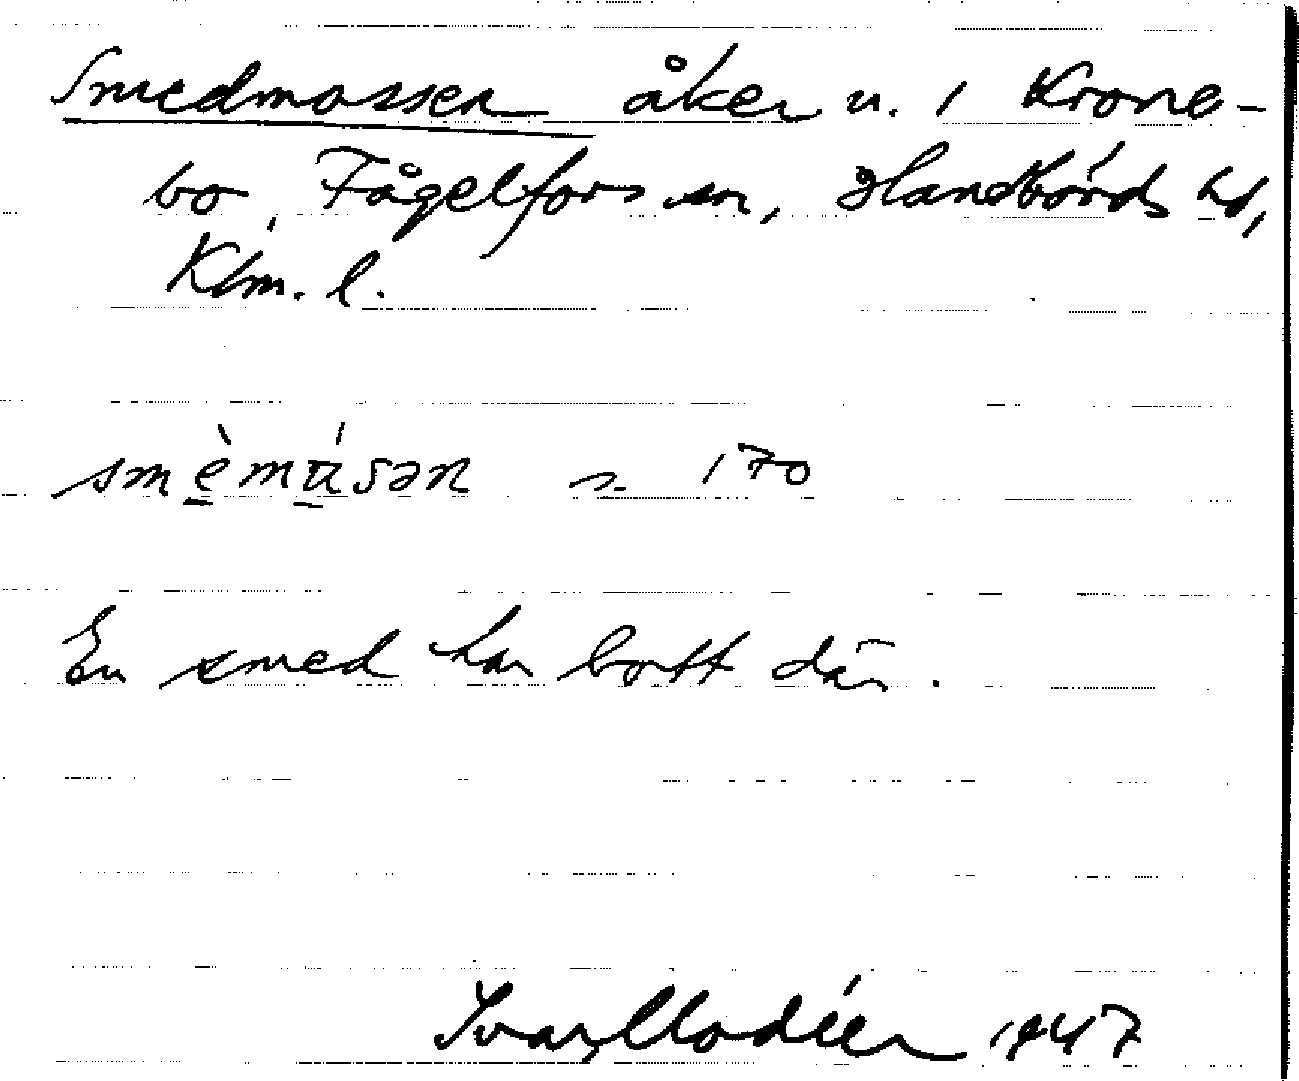 Smedmossen åker n. i Krone-
bo, Fågelfors sn, Handbörds hd,
Klm. l.
smèmúsən s. 170
En smed har bott där.
Ivar Modéer 1947